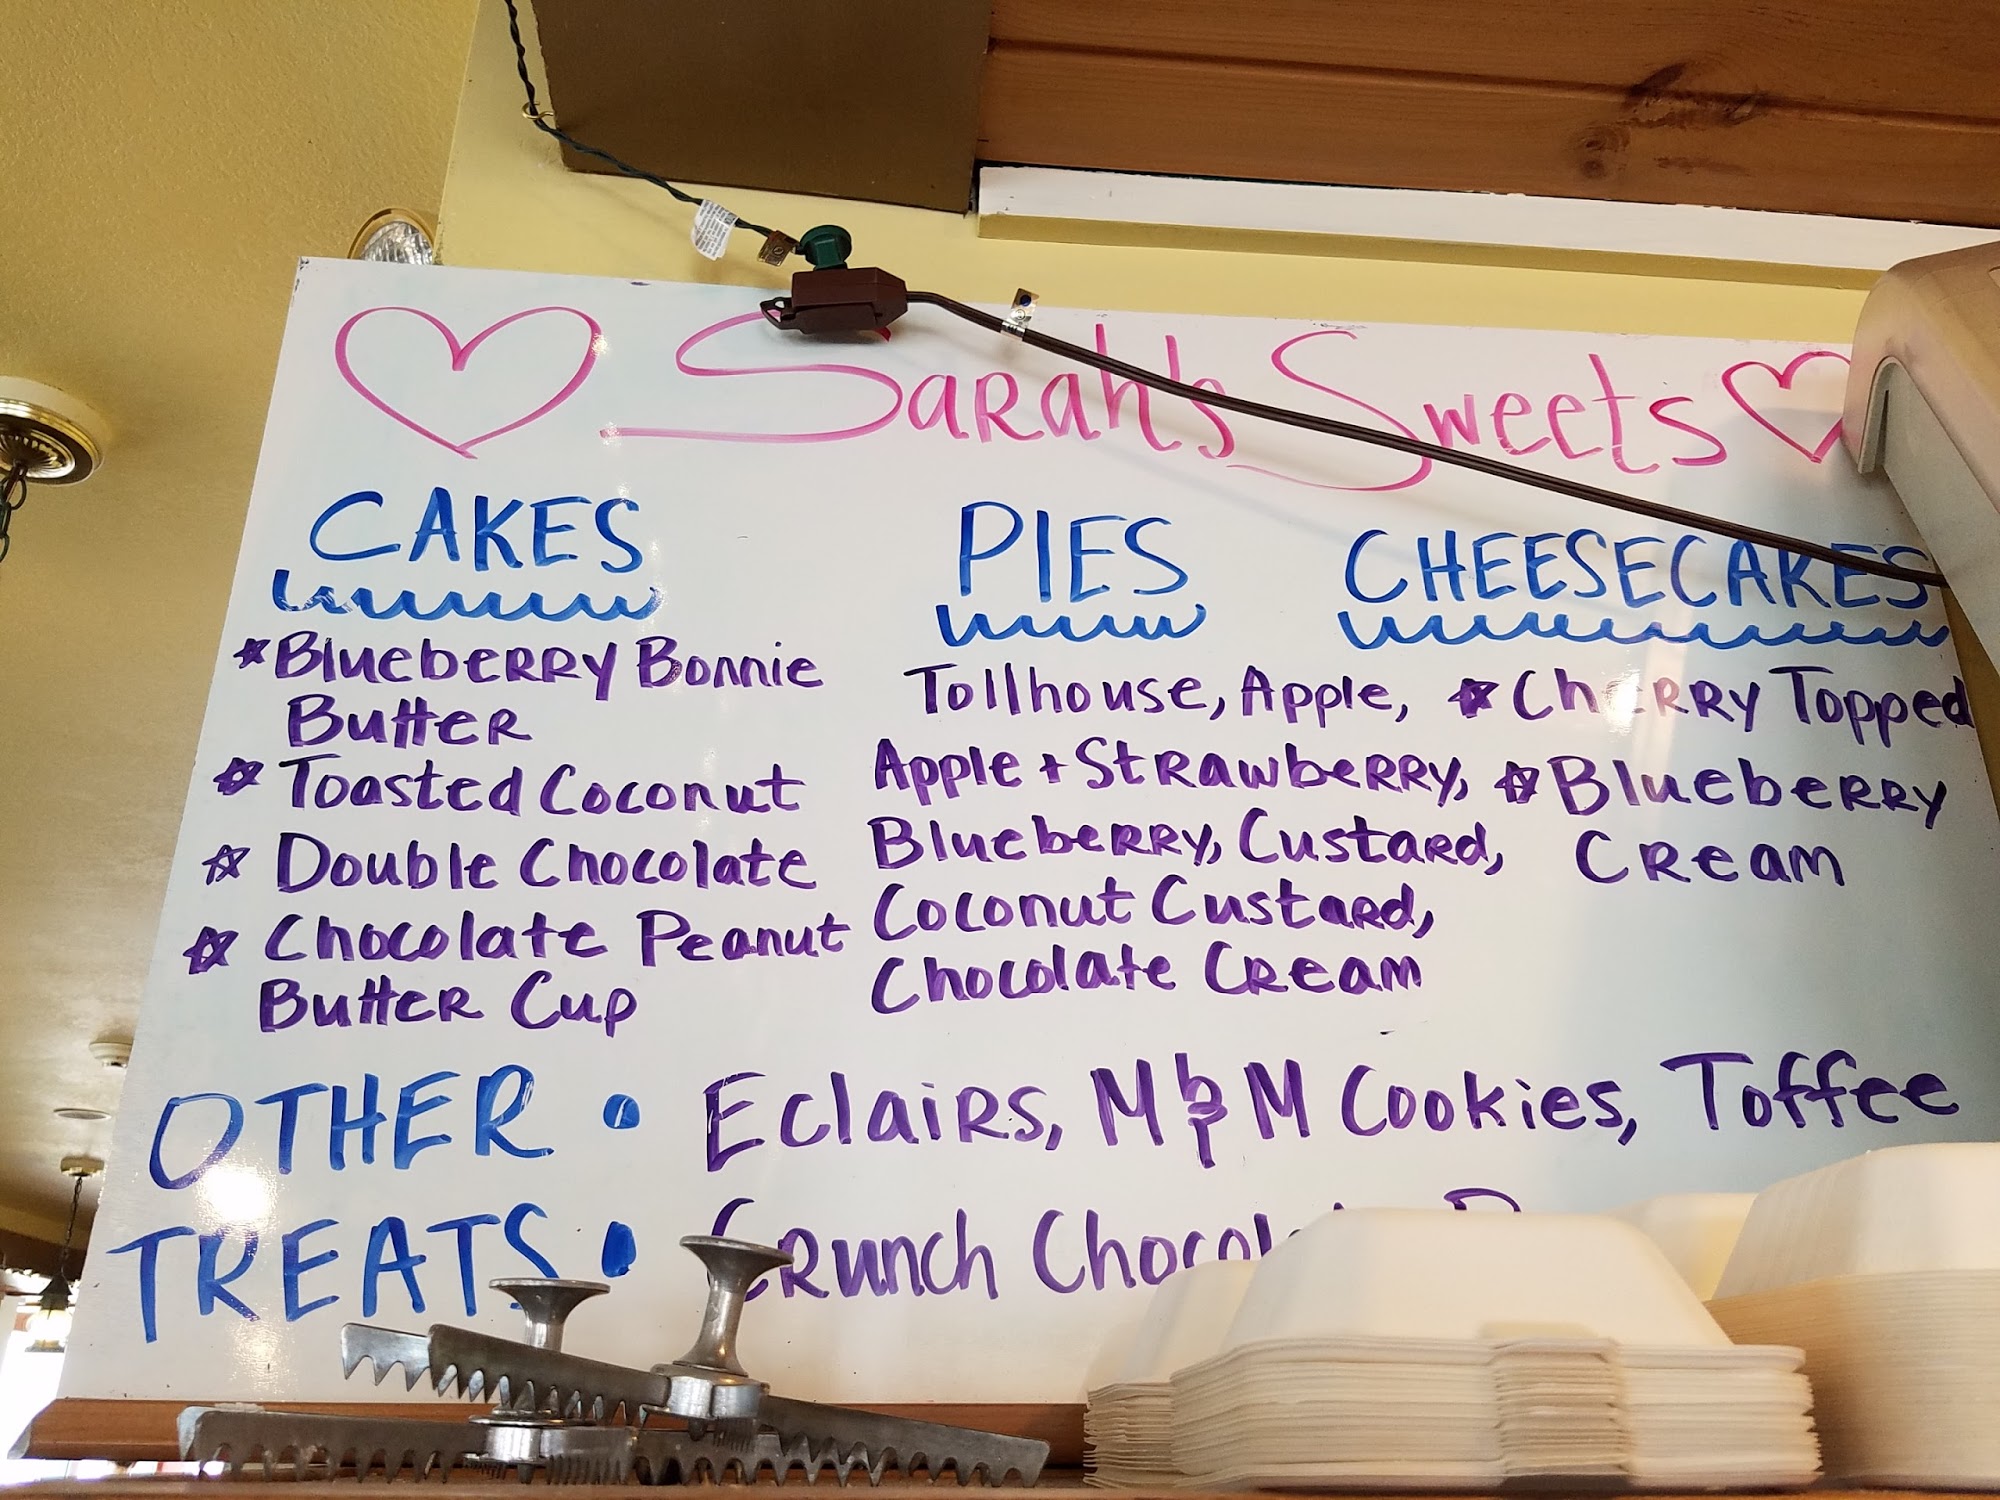 Sarah's Sweets
CAKES
Blueberry Bonnie
Butter
Toasted Coconut
Double Chocolate
Chocolate Peanut
Butter Cup
PIES
Tollhouse, Apple,
Apple + Strawberry,
Blueberry, Custard,
Coconut Custard,
Chocolate Cream
CHEESECAKES
Cherry Topped
Blueberry
Cream
OTHER • Eclairs, M & M Cookies, Toffee
TREATS • Crunch